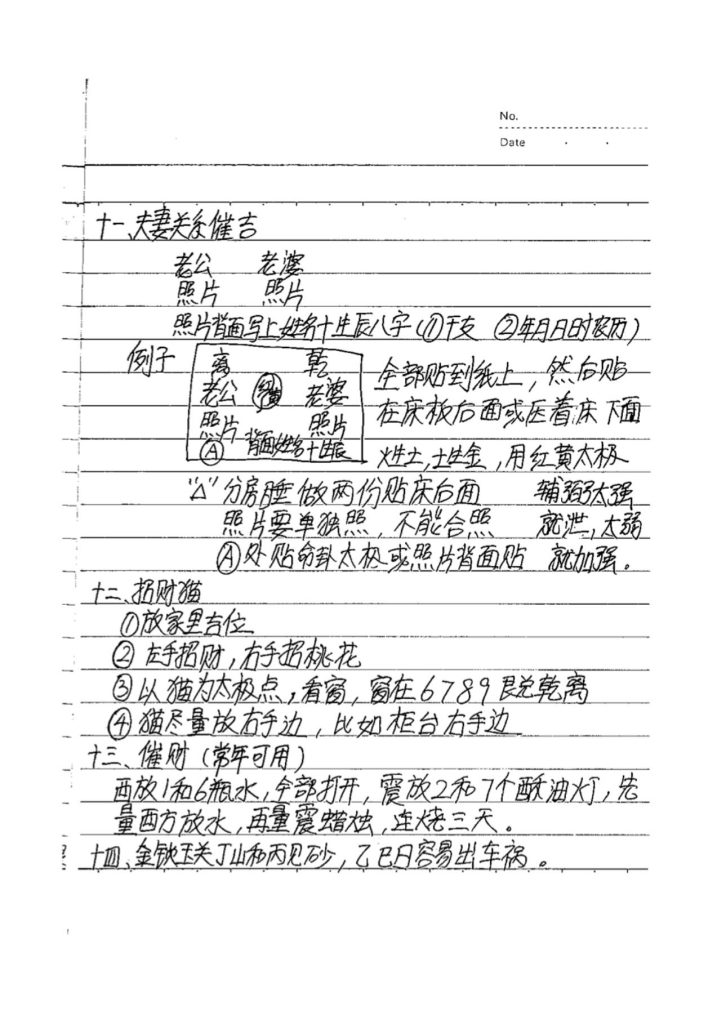 No.
Date
十一、夫妻关系催吉
老公 老婆
照片 照片
照片背面写上姓名十生辰八字（①干支 ②年月日时农历）
例子
离 乾
老公 红黄 老婆
照片 照片
Ⓐ 背面姓名十生辰
全部贴到纸上，然后贴
在床板后面或压着床下面
火生土，土生金，用红黄太极
“△”分房睡做两份贴床后面 辅弼太强
照片要单独照，不能合照 就泄，太弱
Ⓐ处贴命卦太极或照片背面贴 就加强。
十二、招财猫
①放家里吉位
②左手招财，右手招桃花
③以猫为太极点，看窗，窗在6789艮兑乾离
④猫尽量放右手边，比如柜台右手边
十三、催财（常年可用）
西放1和6瓶水，全部打开，震放2和7个酥油灯，先
量西方放水，再量震蜡烛，连烧三天。
十四、金锁玉关丁山和丙见砂，乙巳日容易出车祸。